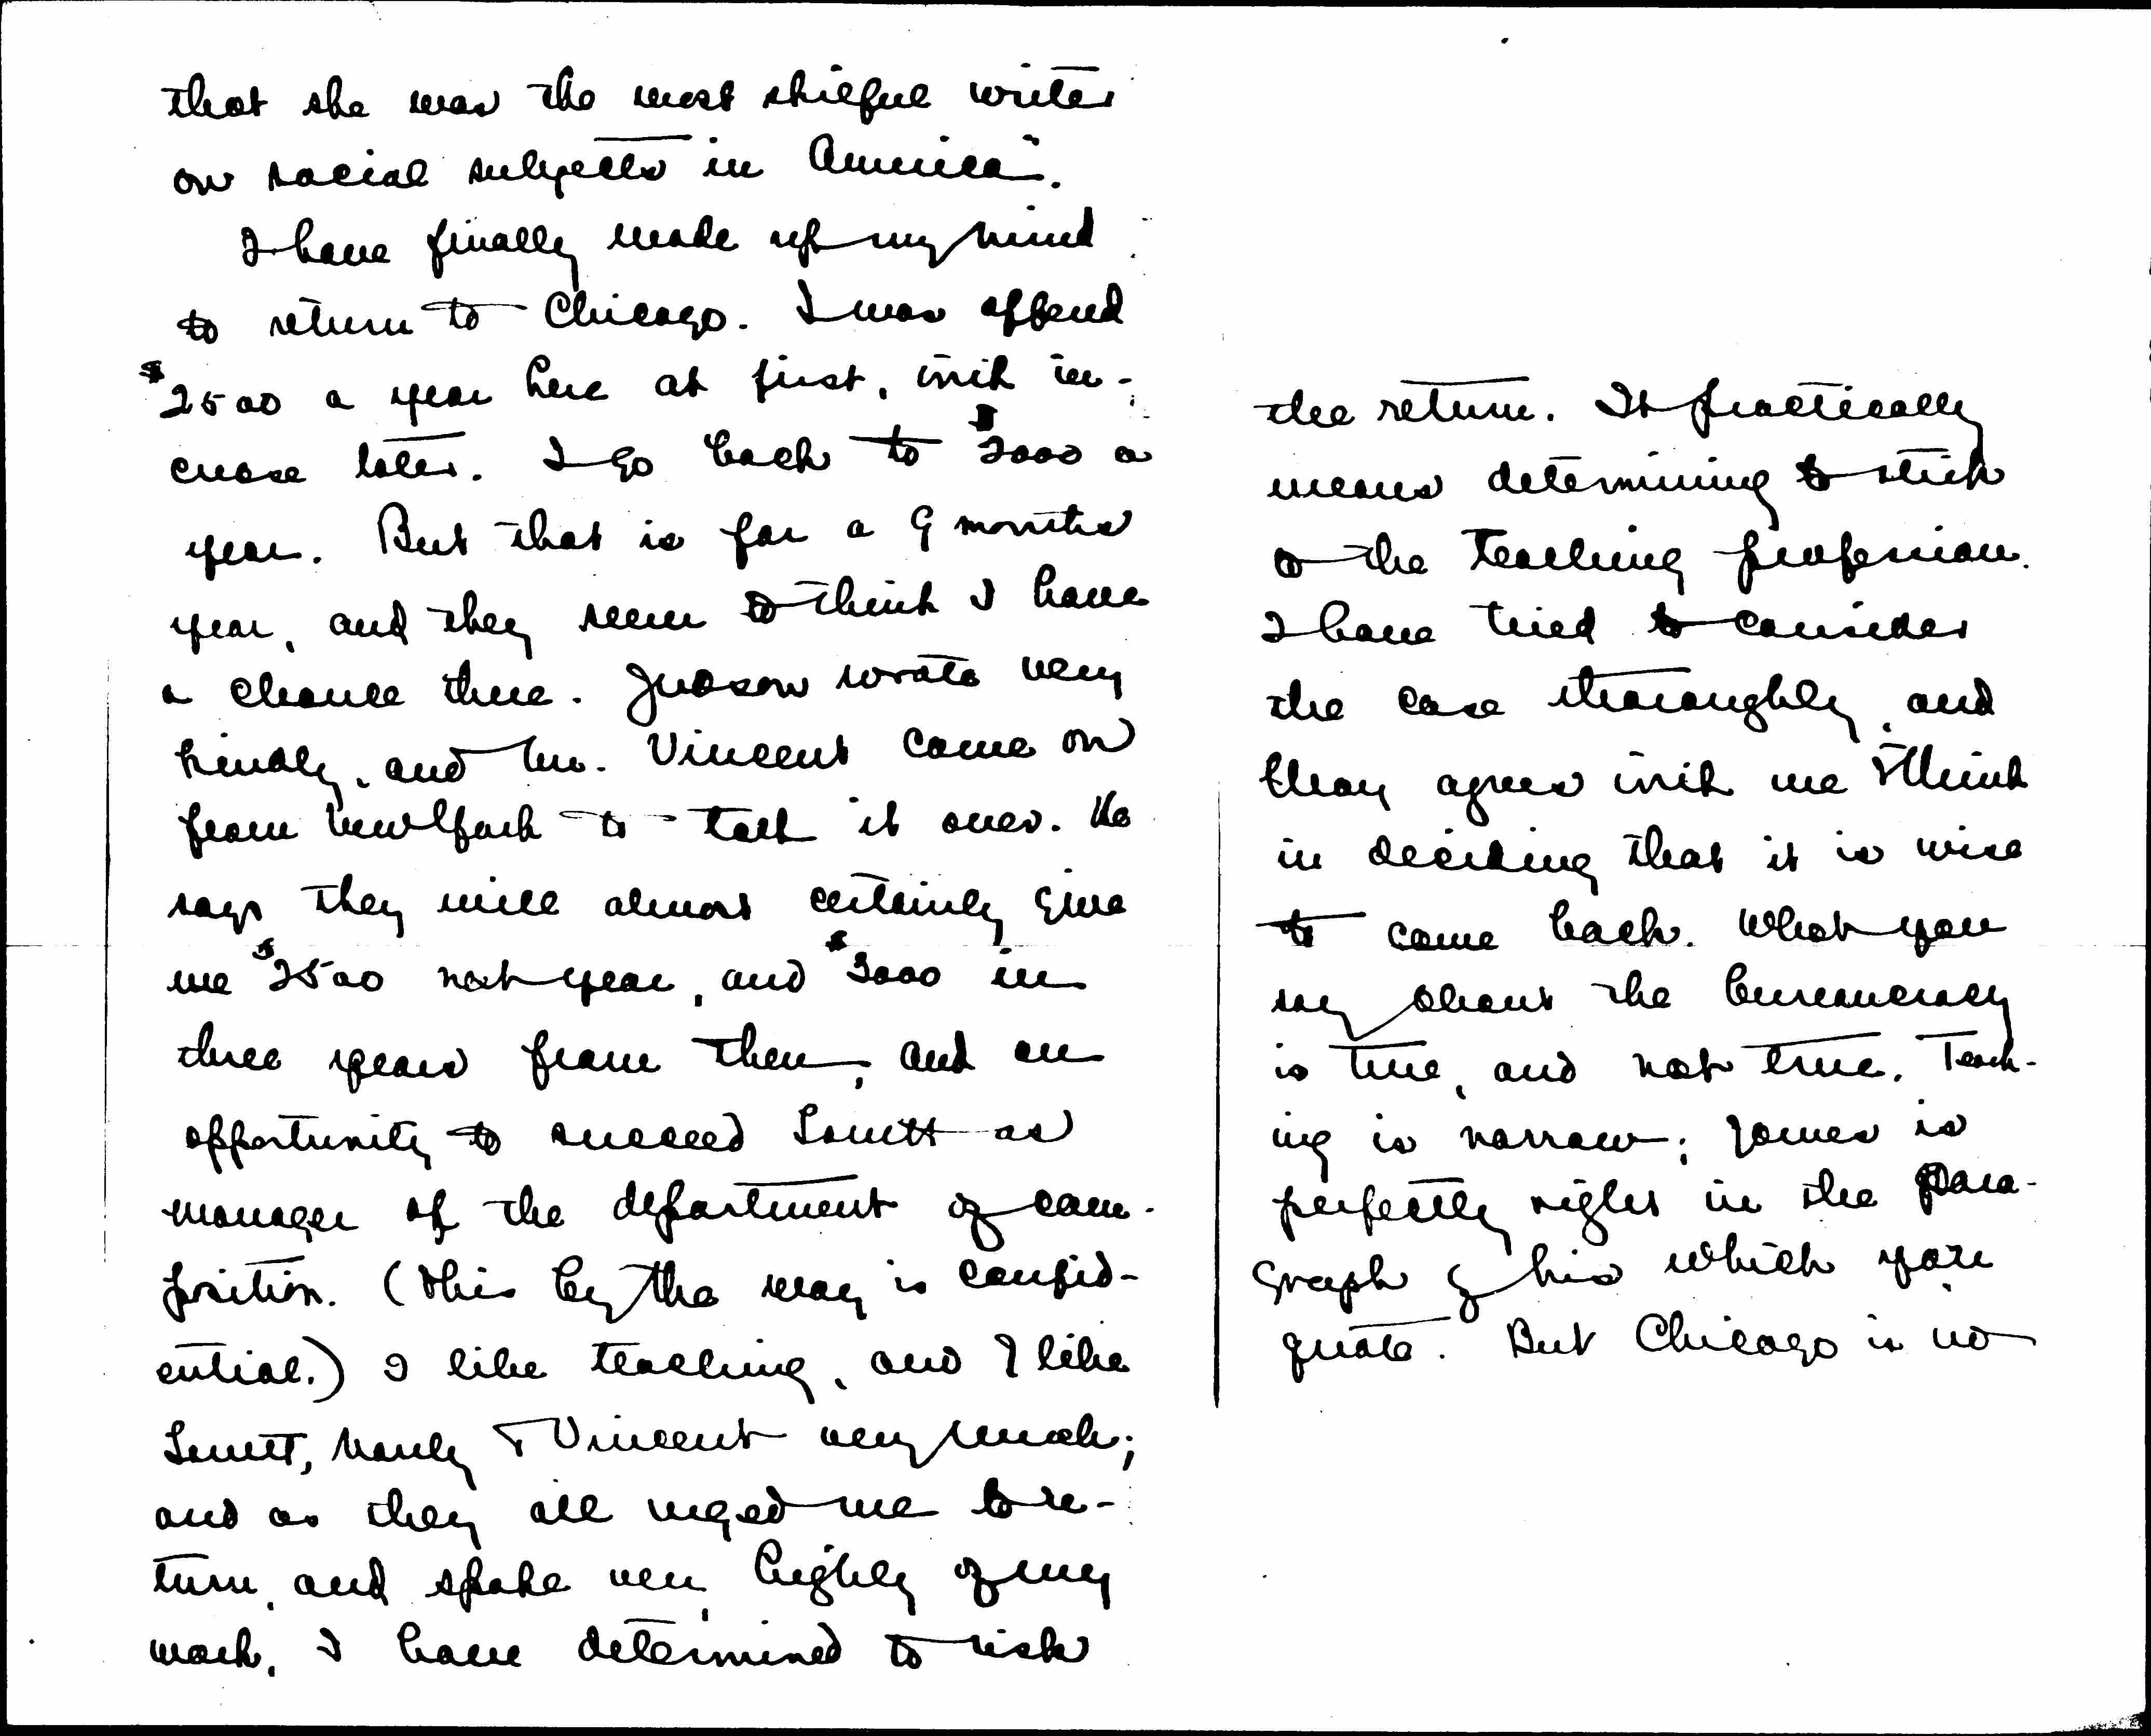 that she was the most skilful writer
on social subjects in America".
I have finally made up my mind
to return to Chicago. I was offered
$2500 a year here at first, with in-
crease later. I go back to $2000 a
year. But that is for a 9 months
year, and they seem to think I have
a chance there. Judson wrote very
kindly, and Mr. Vincent came on
from New York to talk it over. He
says they will almost certainly give
me $2500 next year, and $3000 in
three years from then, and an
opportunity to succeed Lovett as
manager of the department of com-
position. (This by the way is confid-
ential.) I like teaching, and I like
Lovett, Manly & Vincent very much;
and as they all urged me to re-
turn, and spoke very highly of my
work, I have determined to risk
the return. It practically
means determining to stick
to the teaching profession.
I have tried to consider
the case thoroughly, and
May agrees with me I think
in deciding that it is wise
to come back. What you
say about the bureaucracy
is true, and not true. Teach-
ing is narrow; James is
perfectly right in the para-
graph of his which you
quote. But Chicago is no